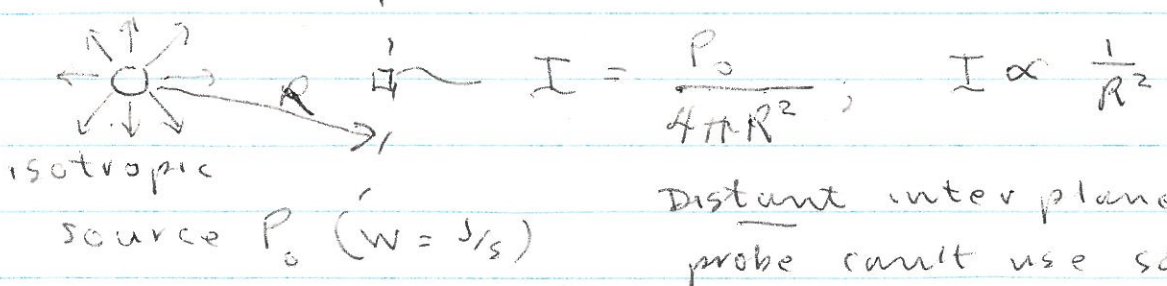 R I = P₀ / 4πR², I ∝ 1/R²
isotropic
source P₀ (W = J/s)
Distant interplane
probe can't use so